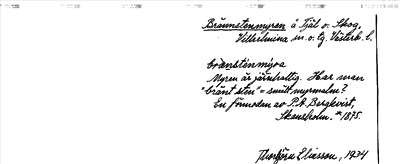 Brännstenmyren å Tjäl o. Skog,
Vilhelmina sn. o. tg. Västerb. l.
brænstenmỳra
Myren är järnhaltig. Har man
"bränt sten" = smält myrmalm?
En förmodan av P.A. Bergkvist,
Skansholm. *1875.
Thorbjörn Eliasson, 1934